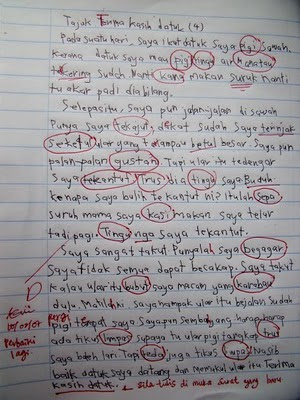 Tajuk Terima kasih datuk (4)
Pada suatu hari, saya ikut datuk saya Pigi sawah.
Kerana datuk saya mau pigi ringo air
kering sudah kang makan suruk nanti
tu akar padi dia bilang.
Selepas itu, saya pun jalan-jalan di sawah
Punya saya terkajut, dekat sudah saya terpijak
seketul ular yang terlampau betul besar. Saya pun
palan-palan gustan. Tapi ular tu tedengar
saya tekantut. Trus dia tingu saya. Buduh
kenapa saya bulih tekantut ni? Itulah sepa
suruh mama saya kasi makan saya telar
tadi pagi. Tingu nga saya tekantut.
Saya sangat takut Punyalah saya begagar
Saya tidak semua dapat becakap. Saya takut
kalau ular itu saya macam yang karabau
dulu. Matilahni. Saya nampak ular itu bejalan sudah
pigi tempat saya. Saya pun harap-harap
ada tikus limpas supaya tu ular pigi tangkap trus
saya buleh lari. Tapi teda juga tikus Nasib
baik datuk saya datang dan memukul ular itu. Terima
Kasih datuk.
10/01/07
Perbaiki
lagi.
Sila tulis di muka surat yang baru.